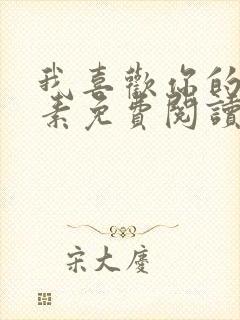 我喜歡你的
素免費閱讀
宋大慶